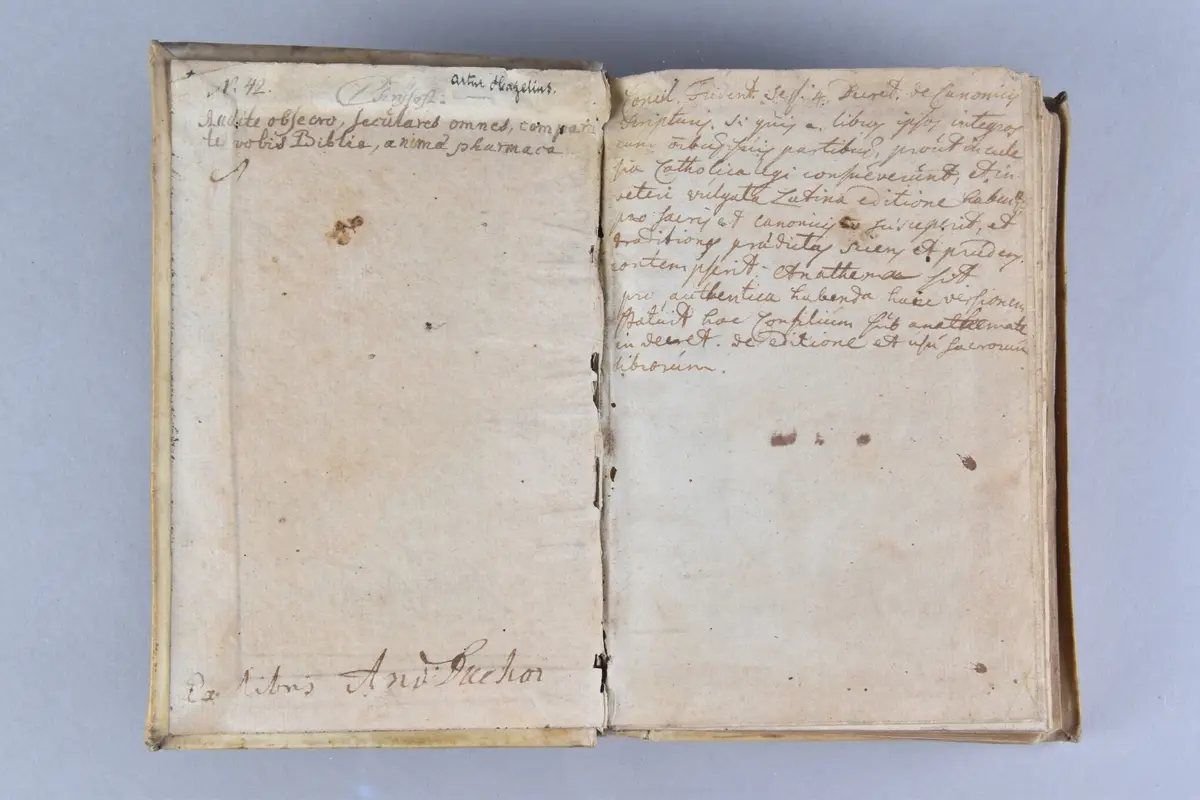 N. 42.
Artur Hazelius.
Chrysost:
Audite obsecro, seculares omnes, compara
te vobis Biblia, animæ pharmaca
Ex libris And Buchor
Concil. Trident. Seß. 4. Decret. de Canonicis
Scripturis. Si quis a. libros ipsos integros
cum oibus suis partibus, prout in eccle
sia Catholica legi consueverunt, et in
veteri vulgata Latina editione habent:
pro sacris et canonicis non susceperit, et
traditiones prædictas sciens et prudens
contempserit: Anathema sit
pro authentica habenda hanc versionem
statuit hoc Consilium sub anathemate
in decret. de editione et usu sacrorum
librorum.